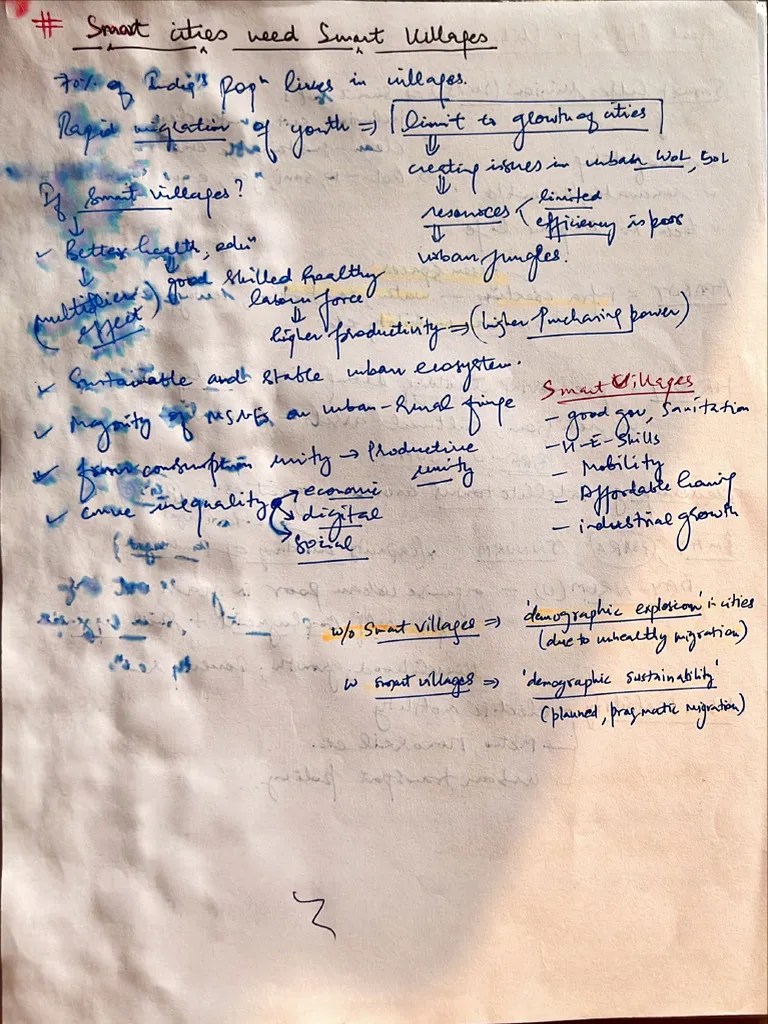 # Smart cities need Smart Villages
70% of India's popn lives in villages.
Rapid migration of youth ⇒ limit to growth of cities
⇓
creating issues in urban WoL, SoL
⇓
resources < limited
efficiency is poor
⇓
urban jungles.
If Smart villages?
↓
✓ Better health, edun
↓
(multiplier effect)
↓
good skilled healthy
labour force
↓
higher productivity ⇒ (higher Purchasing power)
✓ Sustainable and stable urban ecosystem.
✓ Majority of MSMEs on urban-Rural fringe
✓ from consumption unity → Productive
unity
✓ inequality → economic
→ digital
→ social
Smart Villages
- good gov, Sanitation
- H-E-Skills
- Mobility
- Affordable housing
- industrial growth
w/o Smart Villages ⇒ 'demographic explosion' in cities
(due to unhealthy migration)
w smart villages ⇒ 'demographic sustainability'
(planned, pragmatic migration)